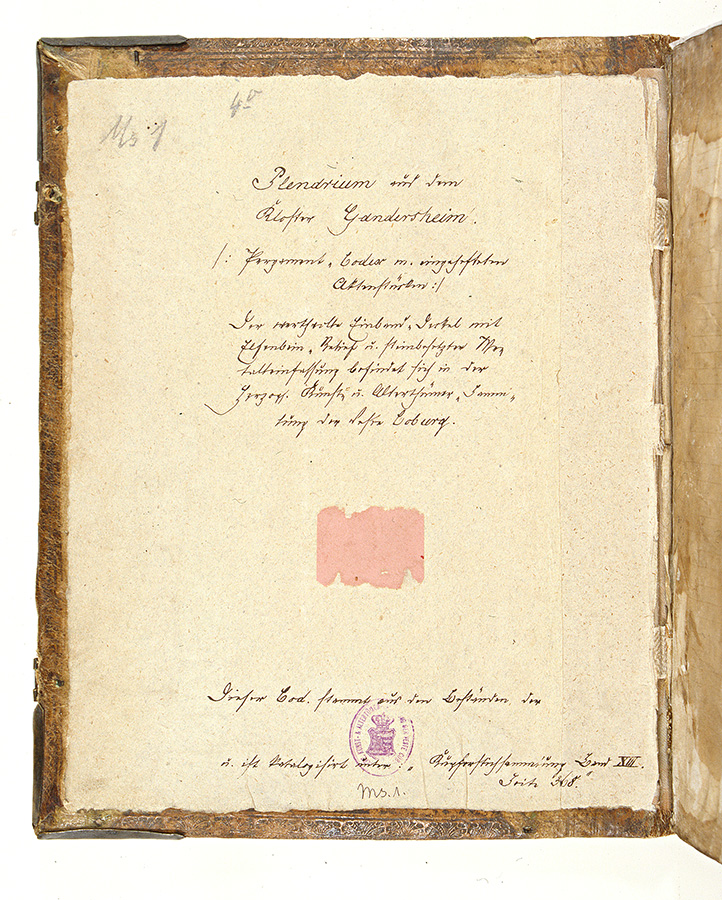 4°
Ms 1
Plenarium aus dem
Kloster Gandersheim.
/: Pergament-Codex m. eingehefteten
Aktenstücken :/
Der wertvolle Einband-Deckel mit
Elfenbein-Relief u. steinbesetzter Me-
talleinfassung befindet sich in der
Herzogl. Kunst- u. Alterthümer-Samm-
lung der Veste Coburg.
Dieser Cod. stammt aus den Beständen der
u. ist katalogisirt unter: „Kupferstichsammlung Band XIII.
Seite 368."
Ms. 1.